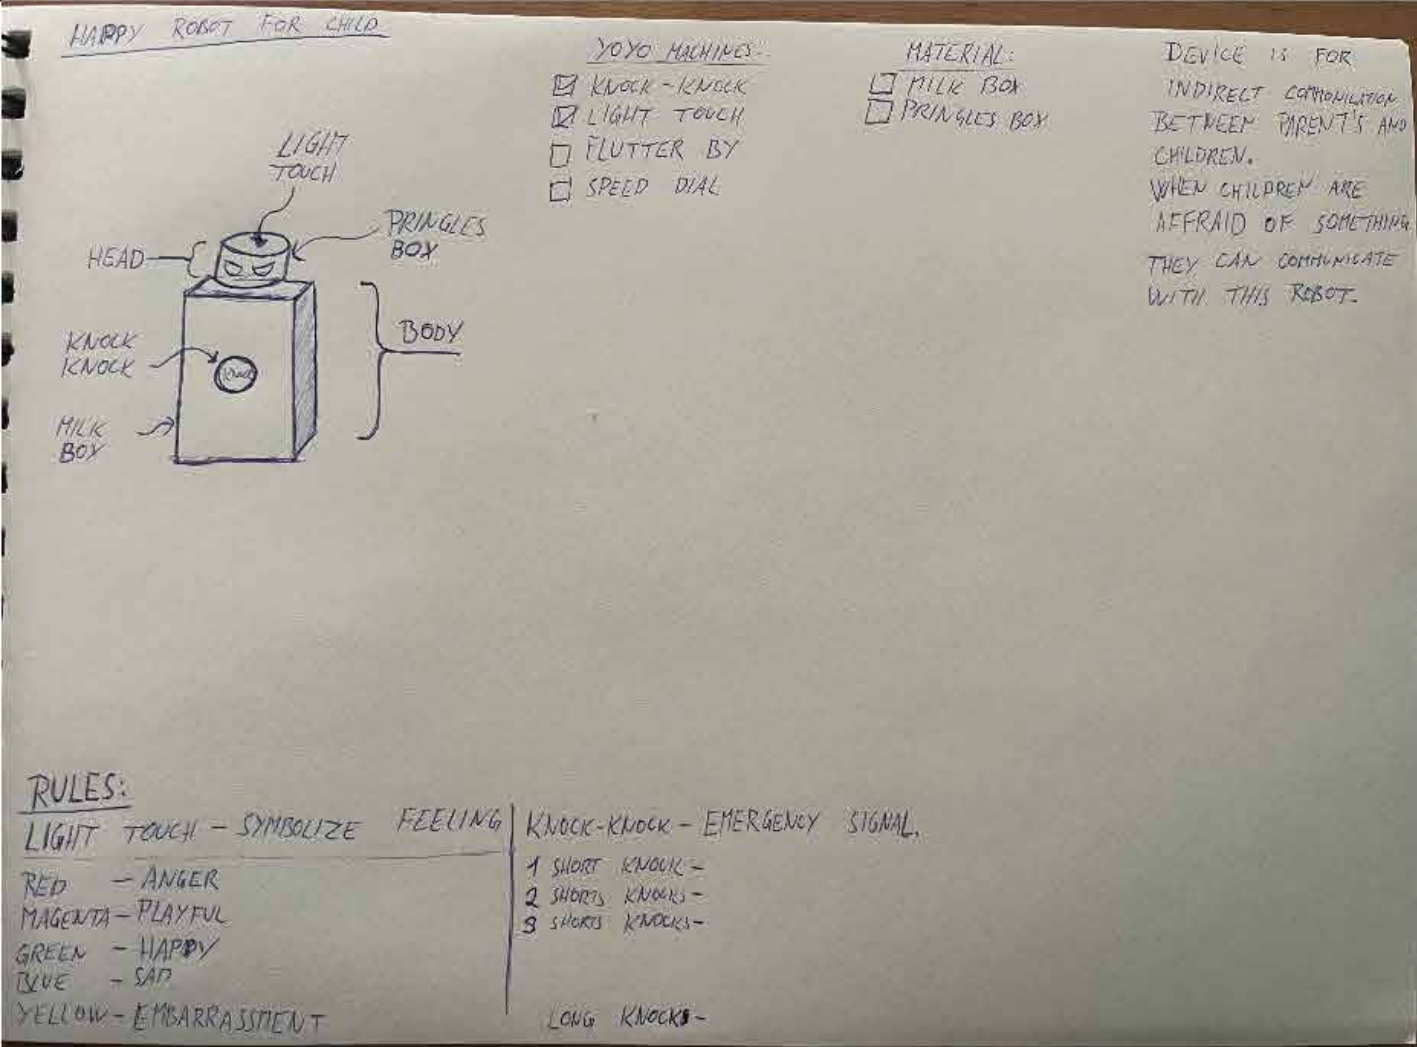 HAPPY ROBOT FOR CHILD
LIGHT
TOUCH
PRINGLES
BOX
HEAD
BODY
KNOCK
KNOCK
MILK
BOX
YOYO MACHINES:
KNOCK-KNOCK
LIGHT TOUCH
FLUTTER BY
SPEED DIAL
MATERIAL:
MILK BOX
PRINGLES BOX
DEVICE IS FOR
INDIRECT COMMONICATION
BETWEEN PARENT'S AND
CHILDREN.
WHEN CHILDREN ARE
AFFRAID OF SOMETHING
THEY CAN COMMUNICATE
WITH THIS ROBOT.
RULES:
LIGHT TOUCH - SYMBOLIZE FEELING
RED - ANGER
MAGENTA - PLAYFUL
GREEN - HAPPY
BLUE - SAD
YELLOW - EMBARRASSMENT
KNOCK-KNOCK - EMERGENCY SIGNAL.
1 SHORT KNOCK -
2 SHORTS KNOCKS -
3 SHORTS KNOCKS -
LONG KNOCKS -